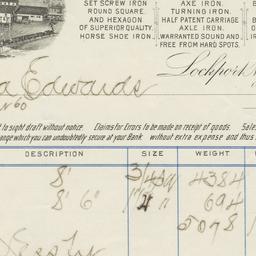 SET SCREW IRON
ROUND SQUARE.
AND HEXAGON
OF SUPERIOR QUALITY.
HORSE SHOE IRON.
AXE IRON.
TURNING IRON.
HALF PATENT CARRIAGE
AXLE IRON.
WARRANTED SOUND AND
FREE FROM HARD SPOTS.
Lockport
Edwards
No
to sight draft without notice. Claims for Errors to be made on receipt of goods.
change which you can undoubtedly secure at your Bank without extra expense and thus
DESCRIPTION SIZE WEIGHT
8' 4384
8' 6" 694
5078